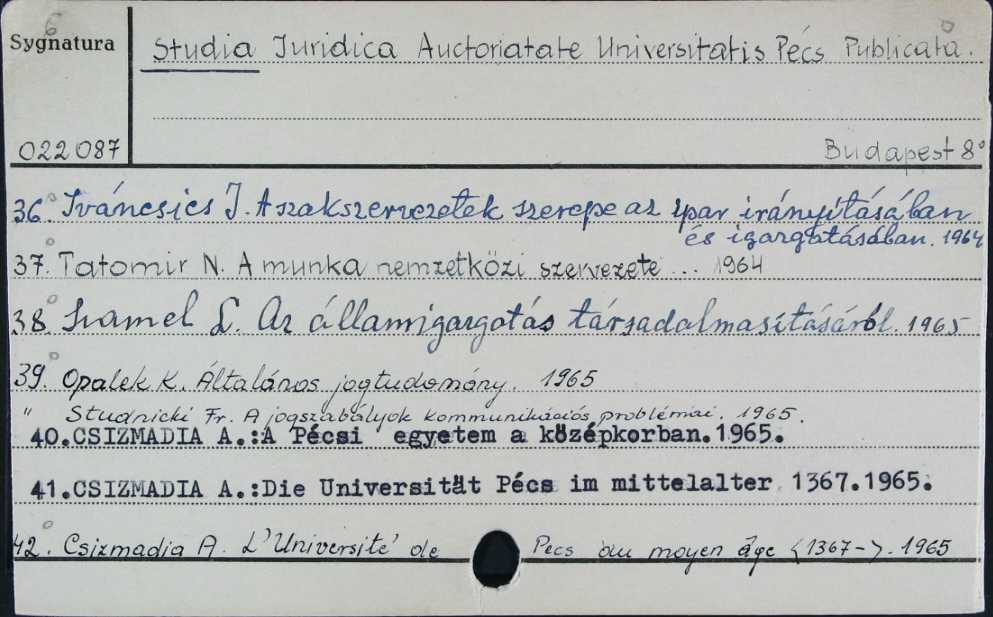 Sygnatura
Studia Iuridica Auctoriatate Universitatis Pécs Publicata.
022087
Budapest 8°
36. Iváncsics I. A szakszervezetek szerepe az ipar irányításában
és igazgatásában. 1964
37. Tatomir N. A munka nemzetközi szervezete ... 1964
38 Szamel L. Az államigazgatás társadalmasításáról. 1965
39. Opałek K. Általános jogtudomány. 1965
" Studnicki Fr. A jogszabályok kommunikációs problémái. 1965.
40.CSIZMADIA A.:A Pécsi egyetem a középkorban.1965.
41.CSIZMADIA A.:Die Universität Pécs im mittelalter 1367.1965.
42. Csizmadia A. L'Université de Pecs au moyen âge <1367->. 1965